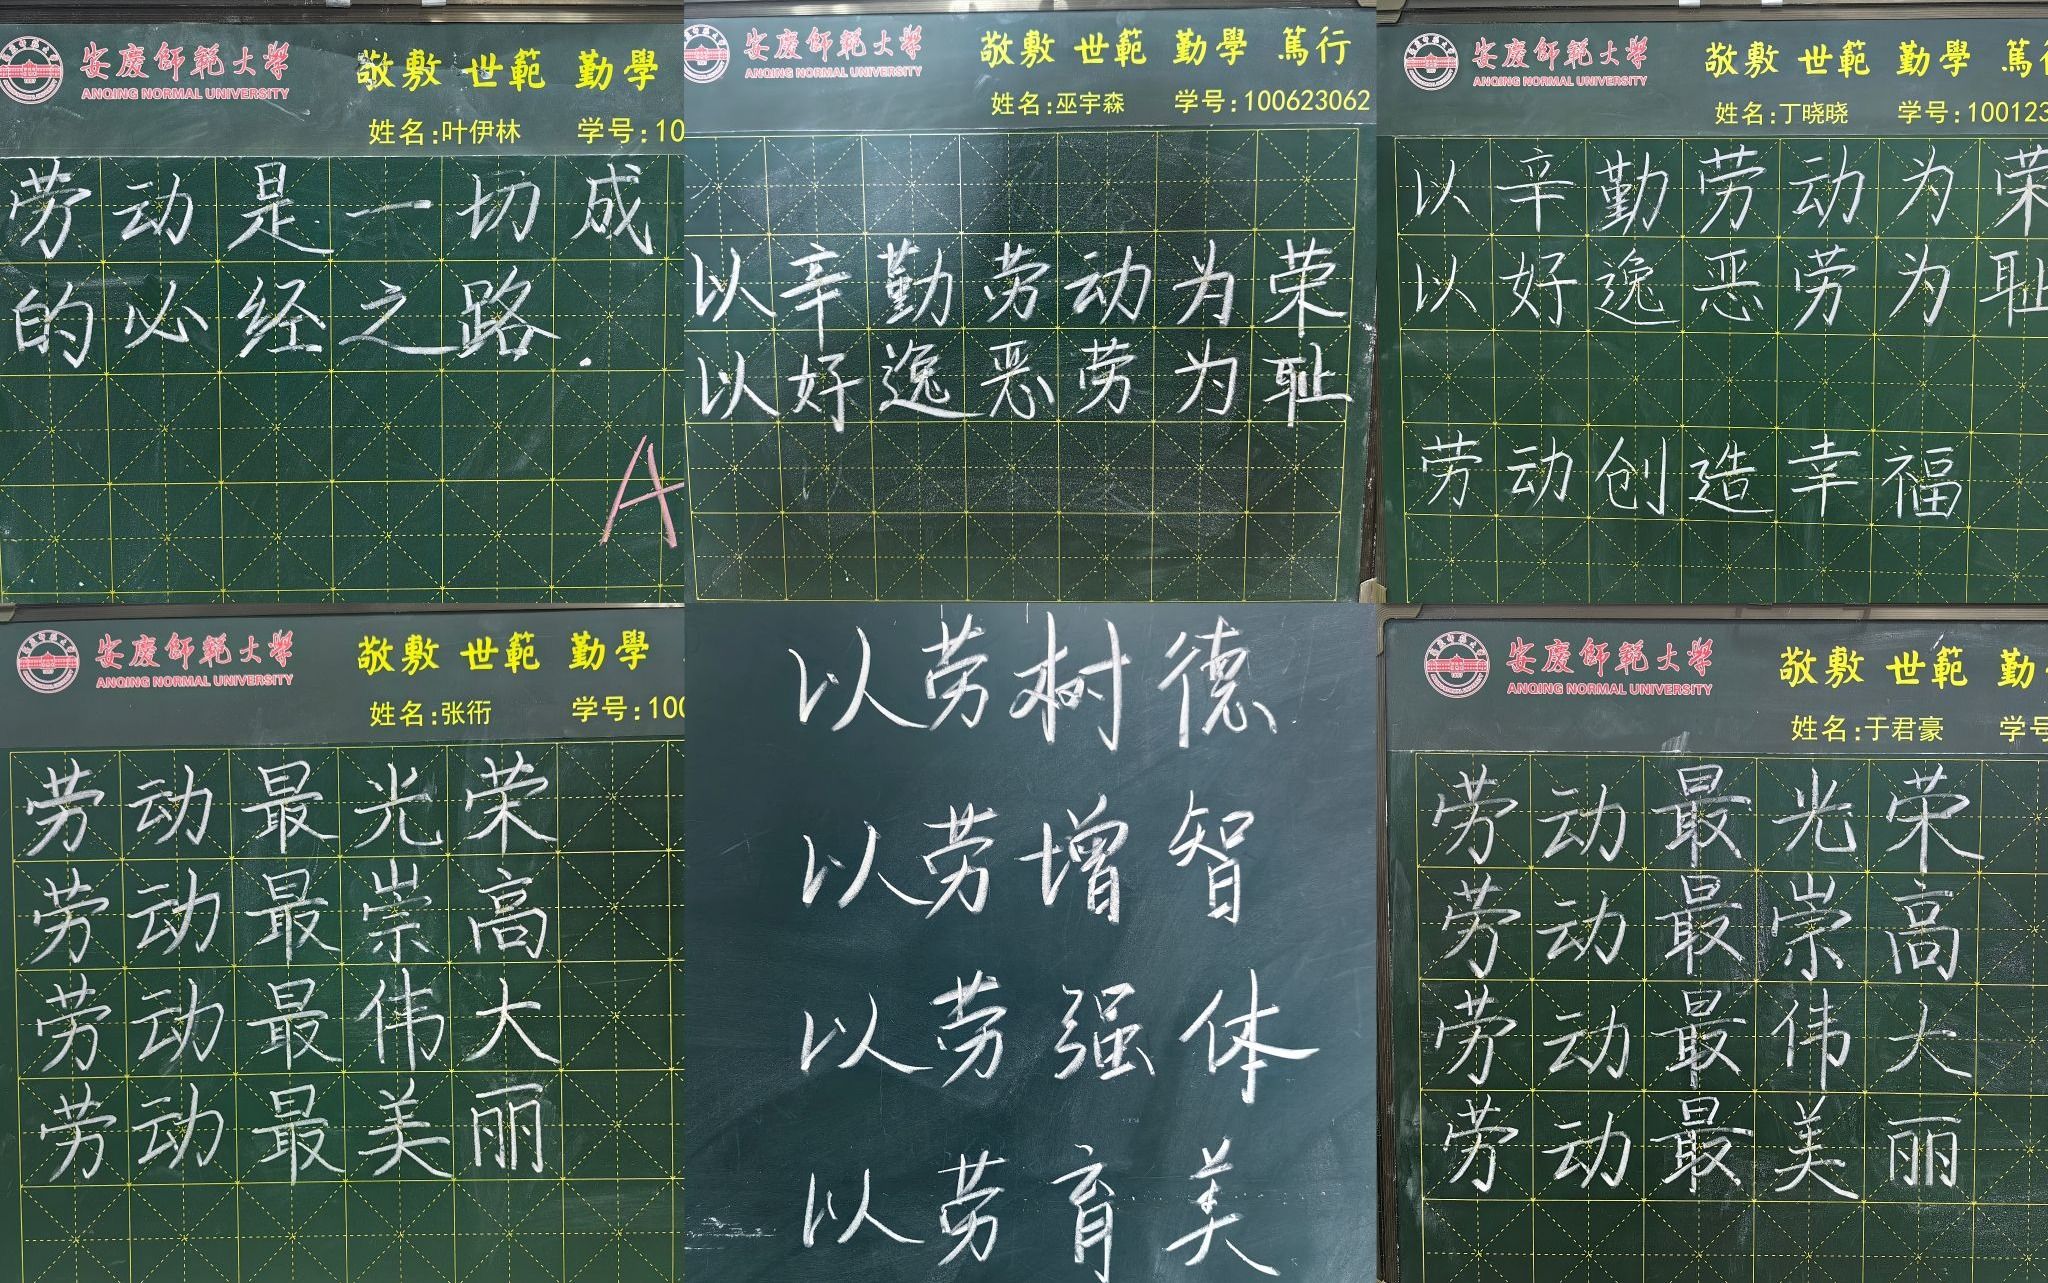 安慶師範大學
ANQING NORMAL UNIVERSITY
敬敷 世範 勤學
姓名:叶伊林 学号:10
劳动是一切成
的必经之路.
A
安慶師範大學
ANQING NORMAL UNIVERSITY
敬敷 世範 勤學 篤行
姓名:巫宇森 学号:100623062
以辛勤劳动为荣
以好逸恶劳为耻
安慶師範大學
ANQING NORMAL UNIVERSITY
敬敷 世範 勤學 篤行
姓名:丁晓晓 学号:100123
以辛勤劳动为荣
以好逸恶劳为耻
劳动创造幸福
安慶師範大學
ANQING NORMAL UNIVERSITY
敬敷 世範 勤學
姓名:张衎 学号:100
劳动最光荣
劳动最崇高
劳动最伟大
劳动最美丽
以劳树德
以劳增智
以劳强体
以劳育美
安慶師範大學
ANQING NORMAL UNIVERSITY
敬敷 世範 勤
姓名:于君豪 学号
劳动最光荣
劳动最崇高
劳动最伟大
劳动最美丽